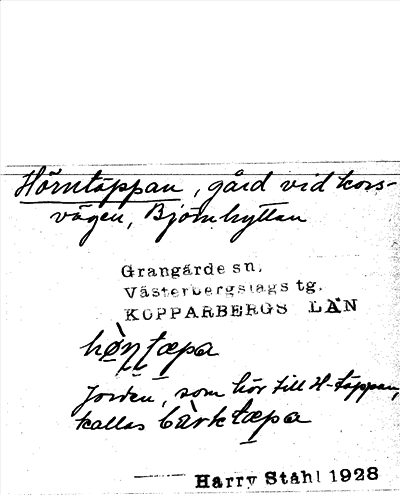 Hörntäppan, gård vid kors-
vägen, Björnhyttan
Grangärde sn,
Västerbergslags tg.
KOPPARBERGS LÄN
hǫ̀n̲t̲æpa
Jorden, som hör till H-täppan,
kallas bàrktæpa
Harry Ståhl 1928